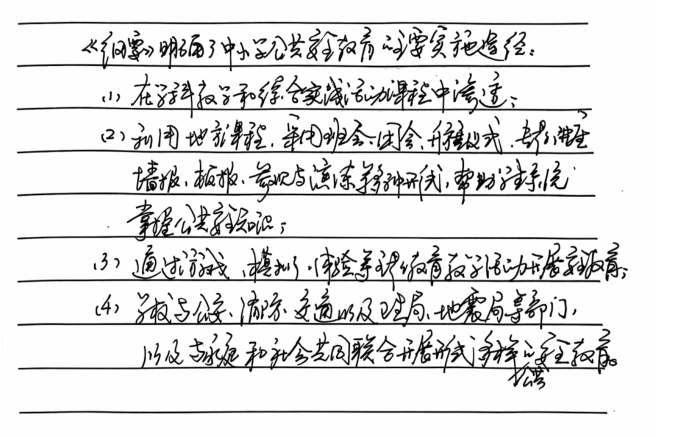 《纲要》明确了中小学公共安全教育的主要实施途径：
(1) 在学科教学和综合实践活动课程中渗透；
(2) 利用地方课程，采用班会、团会、升旗仪式、专题讲座
墙报、板报、参观与演练等多种形式，帮助学生系统
掌握公共安全知识；
(3) 通过游戏、模拟、体验等主题教育教学活动开展安全教育；
(4) 学校与公安、消防、交通以及卫生局、地震局等部门，
以及与家庭和社会共同联合开展形式多样的安全教育。
公共